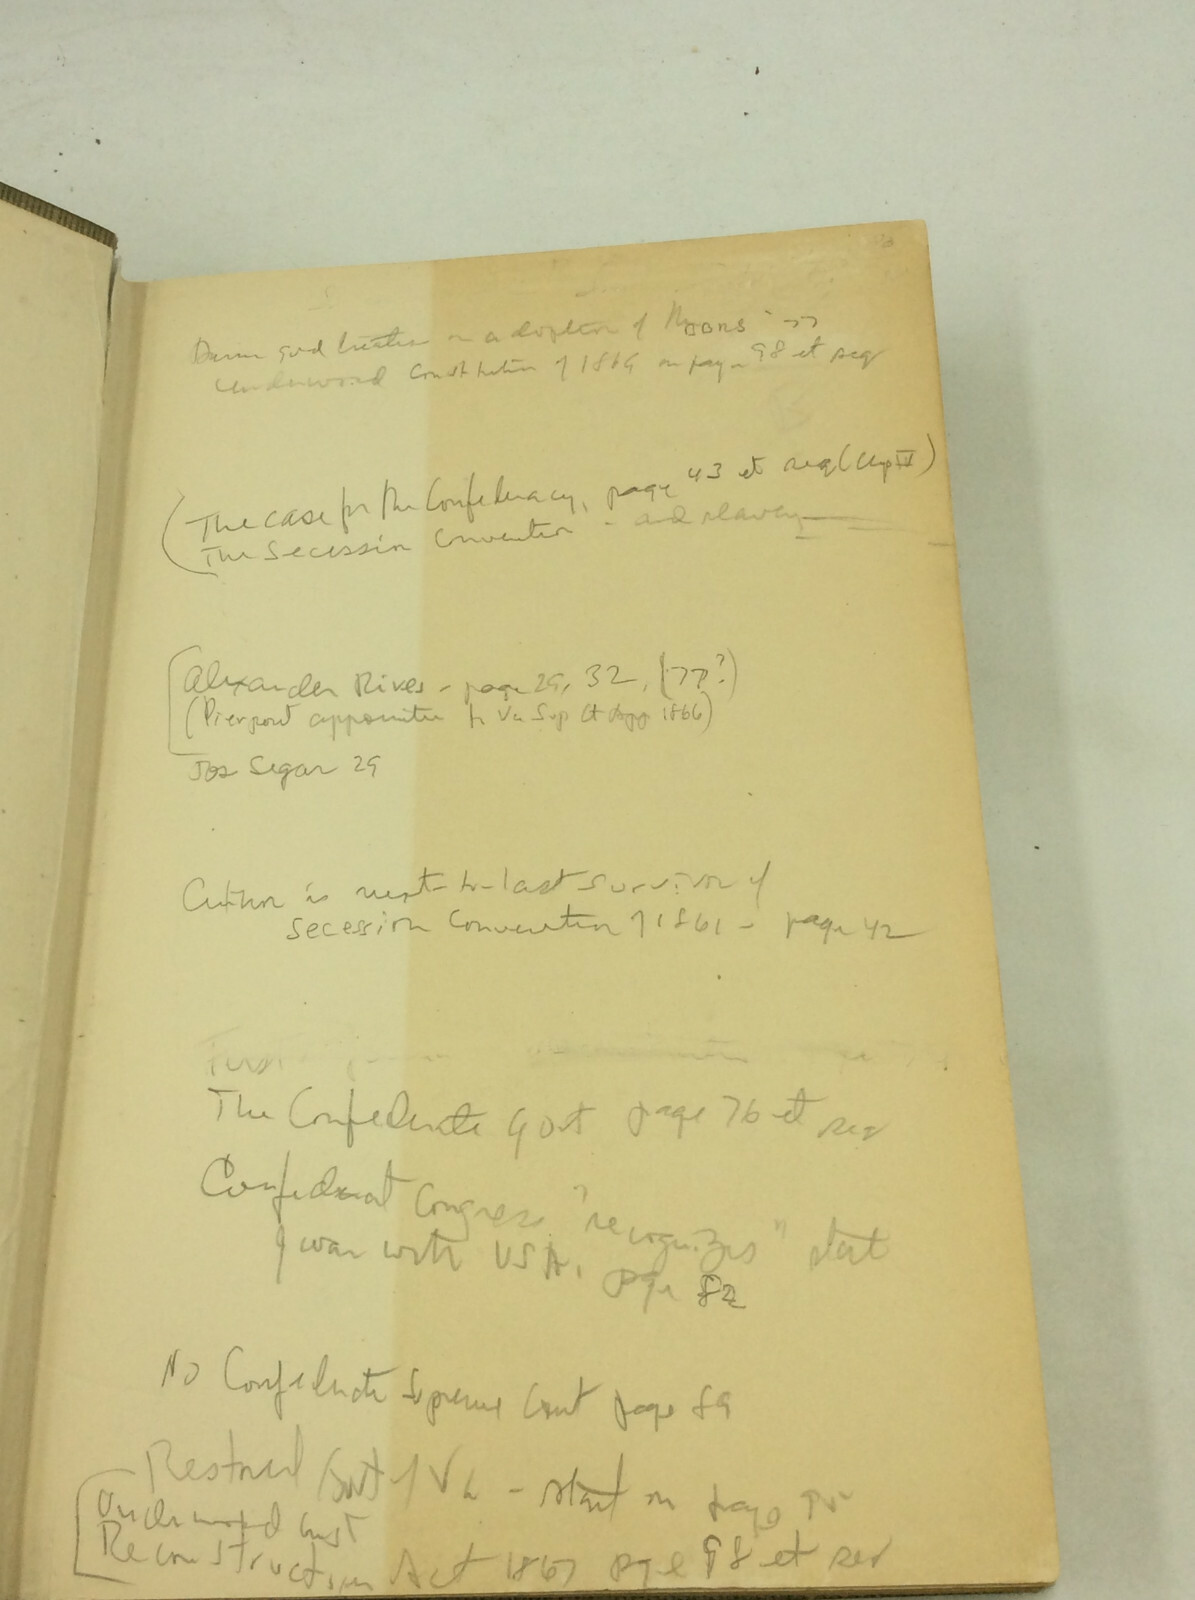 Damn good treatise on adoption of
Underwood Constitution of 1869 on page 98 et seq
(The case for the Confederacy, page 43 et seq (Chap IV)
The Secession Convention - and slavery
Alexander Rives - page 29, 32, (77?)
(Pierpont appointee to Va Sup Ct App 1866)
Jos Segar 29
Author is next-to-last survivor of
secession convention of 1861 - page 42
First
The Confederate Govt page 76 et seq
Confederat Congress "recognizes" stat
of war with USA, page 82
No Confederate Supreme Court page 89
Restored Govt of Va - start on page
Underwood Const
Reconstruction Act 1867 page 98 et seq